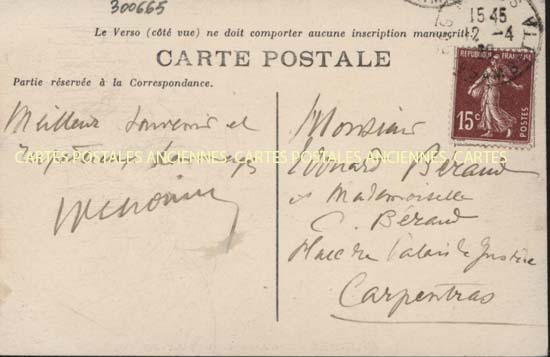 300665
Le Verso (côté vue) ne doit comporter aucune inscription manuscrite
CARTE POSTALE
Partie réservée à la Correspondance.
15 45
2 -4
REPUBLIQUE FRANÇAISE
15c
POSTES
Meilleur souvenir et
CARTES POSTALES ANCIENNES CARTES POSTALES ANCIENNES CARTES POSTALES
Monsieur
Edouard Béraud
et Mademoiselle
C. Béraud
Place du Palais de Justice
Carpentras